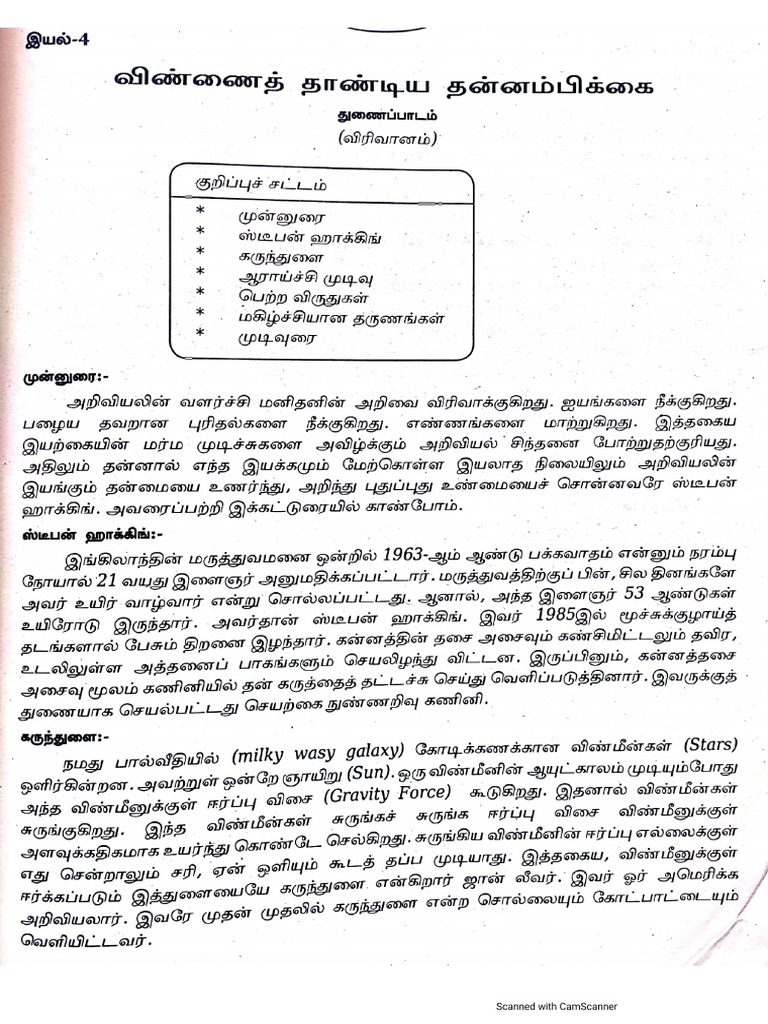 இயல்-4
விண்ணைத் தாண்டிய தன்னம்பிக்கை
துணைப்பாடம்
(விரிவானம்)
குறிப்புச் சட்டம்
* முன்னுரை
* ஸ்டீபன் ஹாக்கிங்
* கருந்துளை
* ஆராய்ச்சி முடிவு
* பெற்ற விருதுகள்
* மகிழ்ச்சியான தருணங்கள்
* முடிவுரை
முன்னுரை:-
அறிவியலின் வளர்ச்சி மனிதனின் அறிவை விரிவாக்குகிறது. ஐயங்களை நீக்குகிறது.
பழைய தவறான புரிதல்களை நீக்குகிறது. எண்ணங்களை மாற்றுகிறது. இத்தகைய
இயற்கையின் மர்ம முடிச்சுகளை அவிழ்க்கும் அறிவியல் சிந்தனை போற்றுதற்குரியது.
அதிலும் தன்னால் எந்த இயக்கமும் மேற்கொள்ள இயலாத நிலையிலும் அறிவியலின்
இயங்கும் தன்மையை உணர்ந்து, அறிந்து புதுப்புது உண்மையைச் சொன்னவரே ஸ்டீபன்
ஹாக்கிங். அவரைப்பற்றி இக்கட்டுரையில் காண்போம்.
ஸ்டீபன் ஹாக்கிங்:-
இங்கிலாந்தின் மருத்துவமனை ஒன்றில் 1963-ஆம் ஆண்டு பக்கவாதம் என்னும் நரம்பு
நோயால் 21 வயது இளைஞர் அனுமதிக்கப்பட்டார். மருத்துவத்திற்குப் பின், சில தினங்களே
அவர் உயிர் வாழ்வார் என்று சொல்லப்பட்டது. ஆனால், அந்த இளைஞர் 53 ஆண்டுகள்
உயிரோடு இருந்தார். அவர்தான் ஸ்டீபன் ஹாக்கிங். இவர் 1985இல் மூச்சுக்குழாய்த்
தடங்களால் பேசும் திறனை இழந்தார். கன்னத்தின் தசை அசைவும் கண்சிமிட்டலும் தவிர,
உடலிலுள்ள அத்தனைப் பாகங்களும் செயலிழந்து விட்டன. இருப்பினும், கன்னத்தசை
அசைவு மூலம் கணினியில் தன் கருத்தைத் தட்டச்சு செய்து வெளிப்படுத்தினார். இவருக்குத்
துணையாக செயல்பட்டது செயற்கை நுண்ணறிவு கணினி.
கருந்துளை:-
நமது பால்வீதியில் (milky wasy galaxy) கோடிக்கணக்கான விண்மீன்கள் (Stars)
ஒளிர்கின்றன. அவற்றுள் ஒன்றே ஞாயிறு (Sun). ஒரு விண்மீனின் ஆயுட்காலம் முடியும்போது
அந்த விண்மீனுக்குள் ஈர்ப்பு விசை (Gravity Force) கூடுகிறது. இதனால் விண்மீன்கள்
சுருங்குகிறது. இந்த விண்மீன்கள் சுருங்கச் சுருங்க ஈர்ப்பு விசை விண்மீனுக்குள்
அளவுக்கதிகமாக உயர்ந்து கொண்டே செல்கிறது. சுருங்கிய விண்மீனின் ஈர்ப்பு எல்லைக்குள்
எது சென்றாலும் சரி, ஏன் ஒளியும் கூடத் தப்ப முடியாது. இத்தகைய, விண்மீனுக்குள்
ஈர்க்கப்படும் இத்துளையையே கருந்துளை என்கிறார் ஜான் லீவர். இவர் ஓர் அமெரிக்க
அறிவியலார். இவரே முதன் முதலில் கருந்துளை என்ற சொல்லையும் கோட்பாட்டையும்
வெளியிட்டவர்.
Scanned with CamScanner